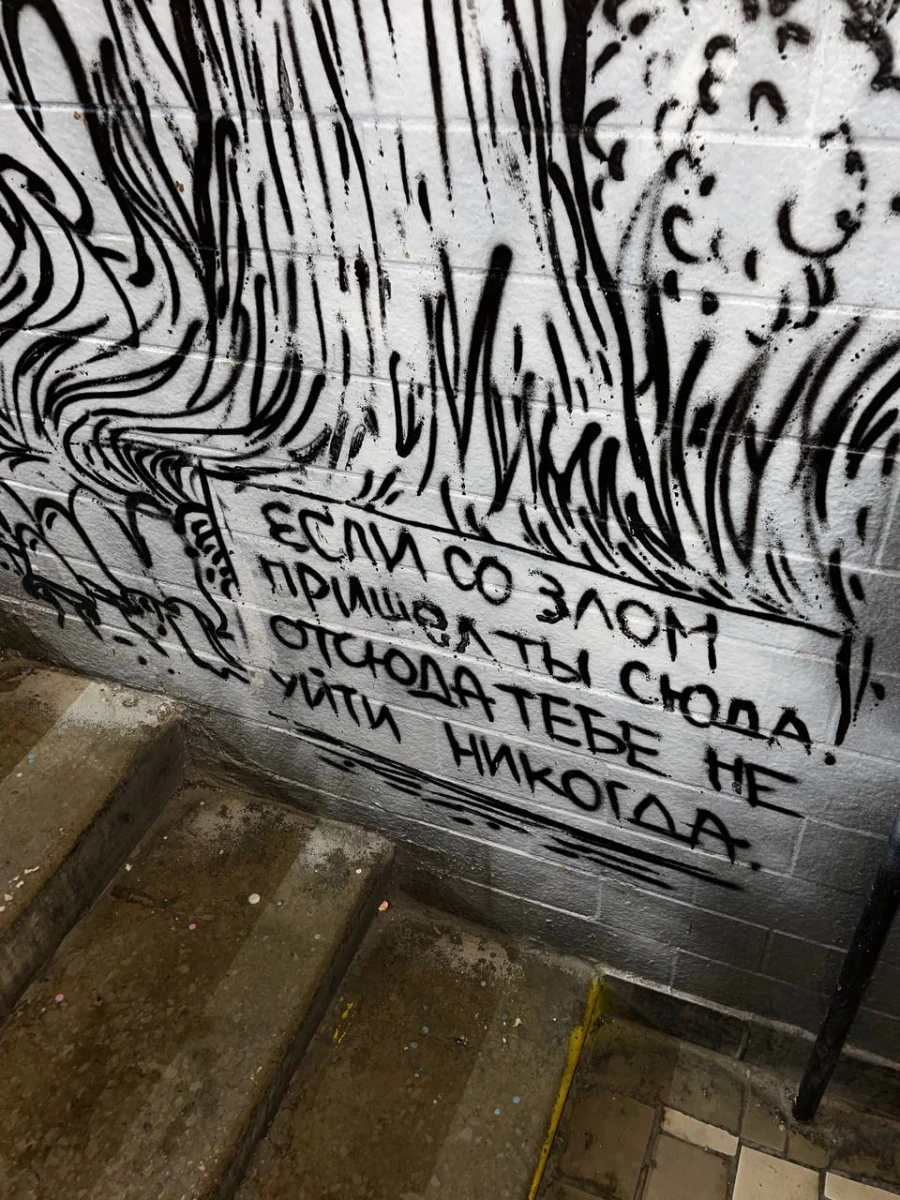 ЕСЛИ СО ЗЛОМ
ПРИШЕЛ ТЫ СЮДА
ОТСЮДА ТЕБЕ НЕ
УЙТИ НИКОГДА.